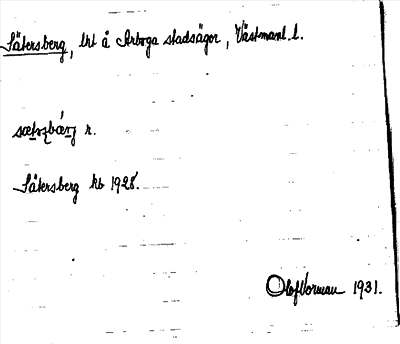 Sätersberg, lht å Arboga stadsägor, Västmanl. l.
r.
Sätersberg kb 1928.
Olof Norman 1931.